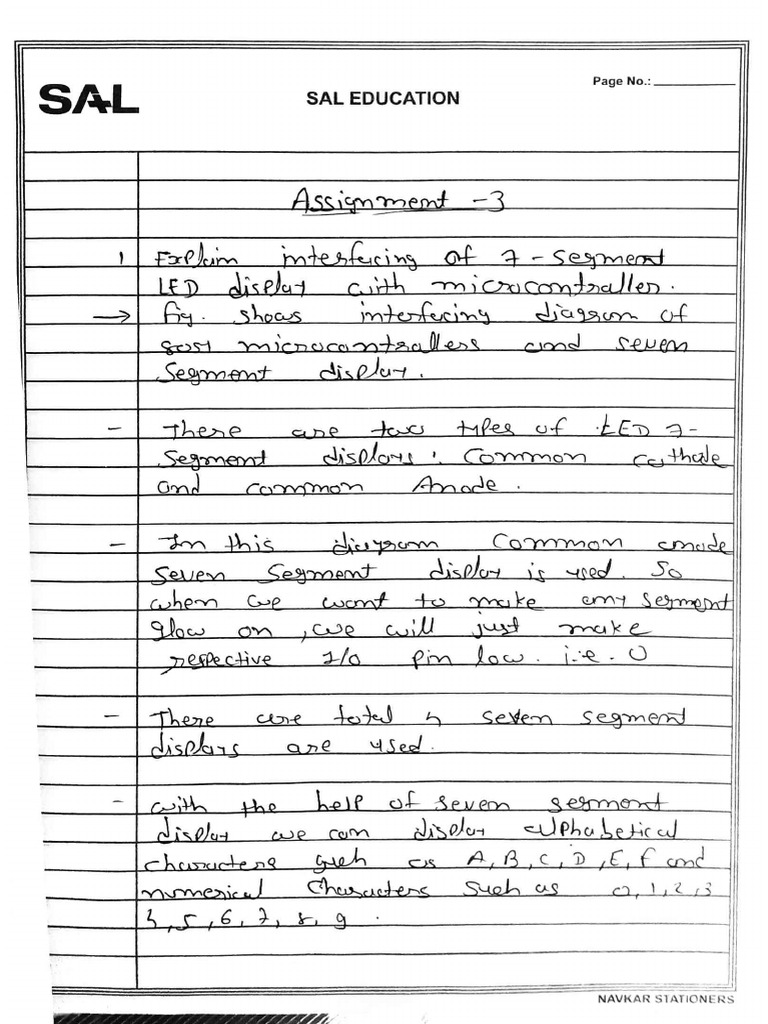 SAL
SAL EDUCATION
Page No.:
Assignment - 3
1 Explain interfacing of 7-segment
LED display with microcontroller.
→ fig. shows interfacing diagram of
8051 microcontrollers and seven
segment display.
- There are two types of LED 7-
segment displays : Common cathode
and common Anode.
- In this diagram Common anode
seven segment display is used. So
when we want to make any segment
glow on, we will just make
respective I/O pin low. i.e. 0
- There are total 4 seven segment
displays are used.
- with the help of seven segment
display we can display alphabetical
characters such as A, B, C, D, E, f and
numerical characters such as 0, 1, 2, 3
4, 5, 6, 7, 8, 9.
NAVKAR STATIONERS